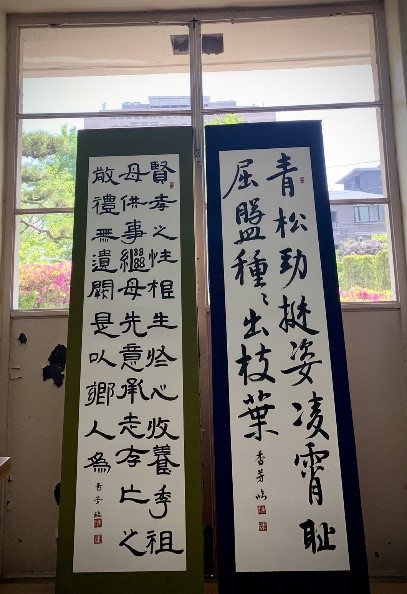 青松勁挺姿凌霄恥
屈盤種〻出枝葉
香芳臨
賢孝之性根生於心收養季祖
母供事繼母先意承志存亡之
敬禮無遺闕是以鄉人為
香芳臨